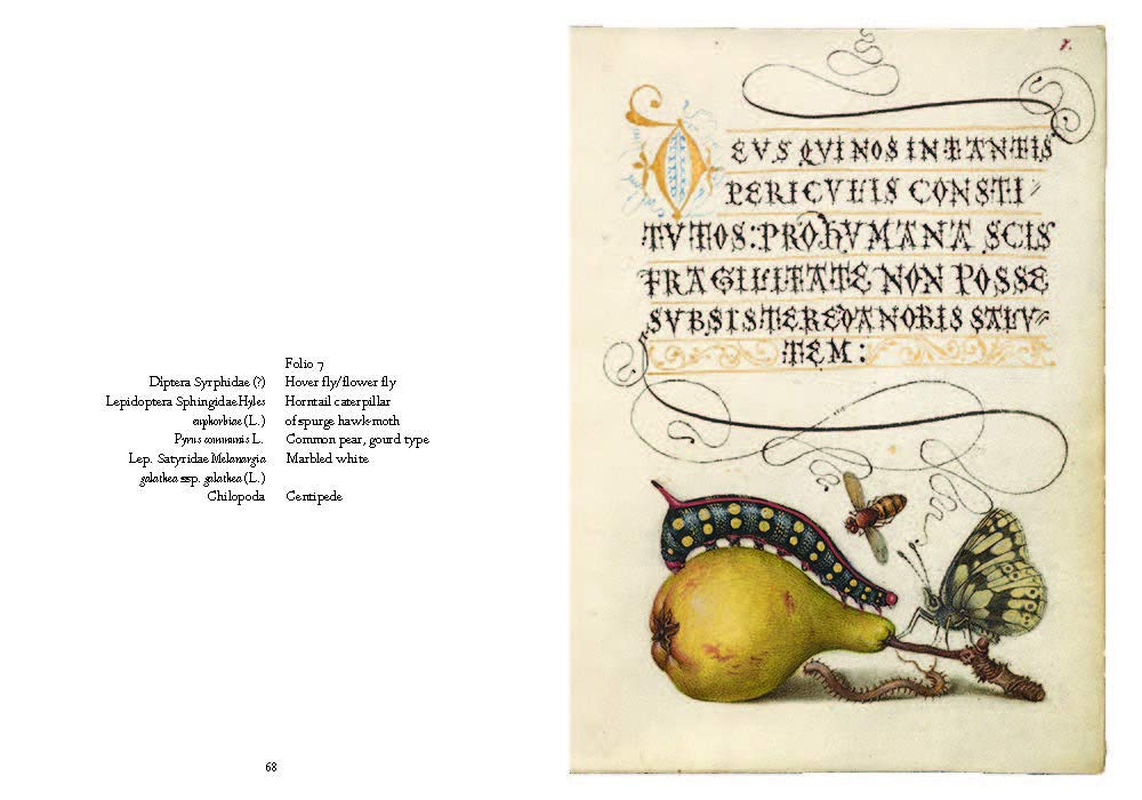 Folio 7
Diptera Syrphidae (?) Hover fly/flower fly
Lepidoptera Sphingidae Hyles Horntail caterpillar
euphorbiae (L.) of spurge hawk-moth
Pyrus communis L. Common pear, gourd type
Lep. Satyridae Melanargia Marbled white
galathea ssp. galathea (L.)
Chilopoda Centipede
68
7.
DEVS QVI NOS IN TANTIS
PERICVLIS CONSTI〃
TVTOS: PRO hVMANA SCIS
FRAGILITATE NON POSSE
SVBSISTERE DA NOBIS SALV〃
TEM: